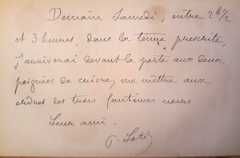 Demain Samedi, entre 2h 1/2
et 3 heures, dans la tenue prescrite,
j'arriverai devant la porte aux deux
poignées de cuivre, me mettre aux
ordres des trois fantômes
Leur ami.
P. Loti